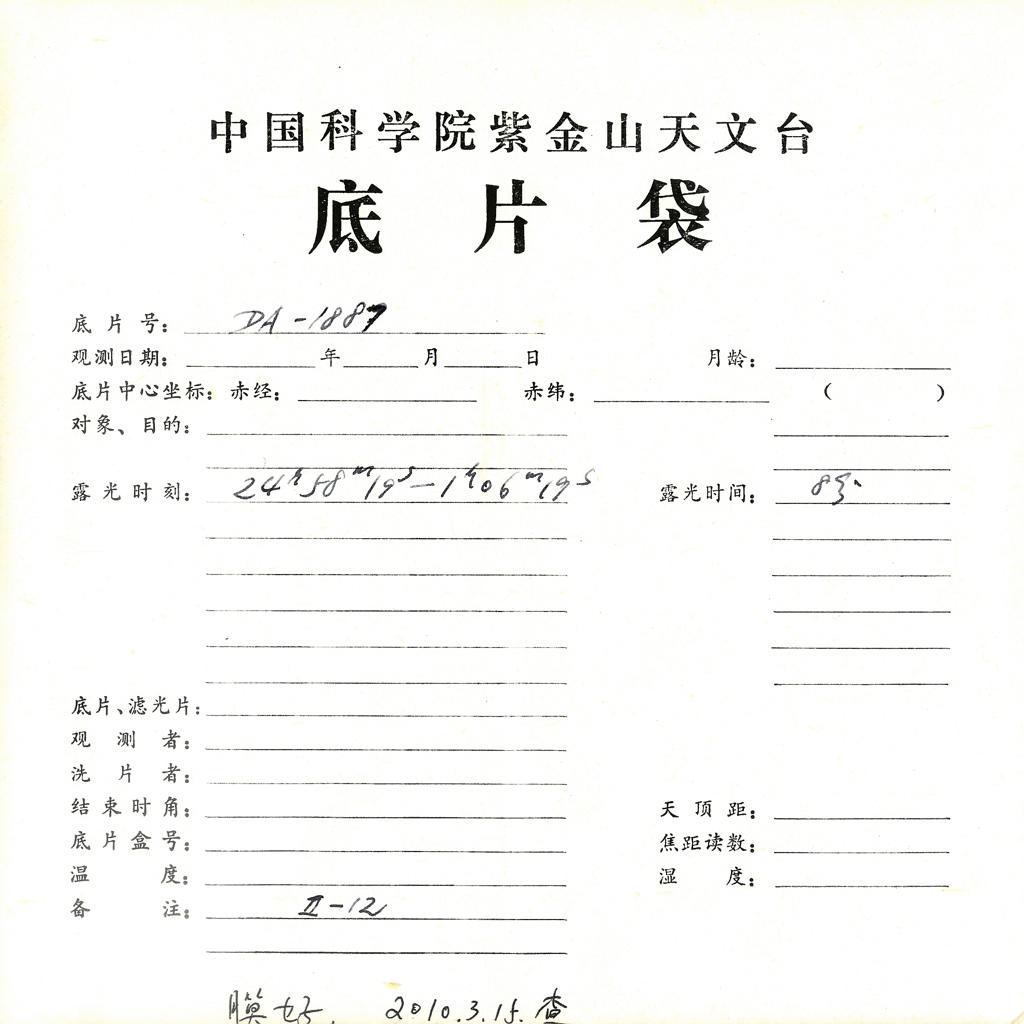 中国科学院紫金山天文台
底片袋
底片号： DA-1887
观测日期： 年 月 日 月龄：
底片中心坐标：赤经： 赤纬： ( )
对象、目的：
露光时刻： 24h58m19s—1h06m19s 露光时间： 8分
底片、滤光片：
观测者：
洗片者：
结束时角： 天顶距：
底片盒号： 焦距读数：
温度： 湿度：
备注： II-12
膜好. 2010.3.15.查